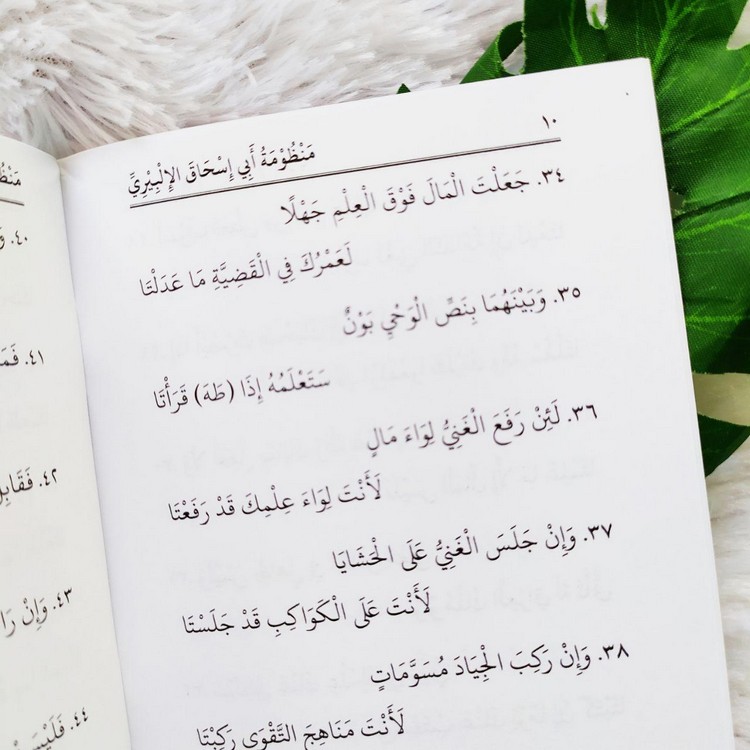 ١٠
مَنْظُوْمَةُ أَبِي إِسْحَاقَ الإِلْبِيْرِيِّ
٣٤. جَعَلْتَ الْمَالَ فَوْقَ الْعِلْمِ جَهْلًا
لَعَمْرُكَ فِي الْقَضِيَّةِ مَا عَدَلْتَا
٣٥. وَبَيْنَهُمَا بِنَصِّ الْوَحْيِ بَوْنٌ
سَتَعْلَمُهُ إِذَا (طَهَ) قَرَأْتَا
٣٦. لَئِنْ رَفَعَ الْغَنِيُّ لِوَاءَ مَالٍ
لَأَنْتَ لِوَاءَ عِلْمِكَ قَدْ رَفَعْتَا
٣٧. وَإِنْ جَلَسَ الْغَنِيُّ عَلَى الْحَشَايَا
لَأَنْتَ عَلَى الْكَوَاكِبِ قَدْ جَلَسْتَا
٣٨. وَإِنْ رَكِبَ الْجِيَادَ مُسَوَّمَاتٍ
لَأَنْتَ مَنَاهِجَ التَّقْوَى رَكِبْتَا
٤٠.
٤١.
٤٢.
٤٣. وَإِنْ
٤٤.